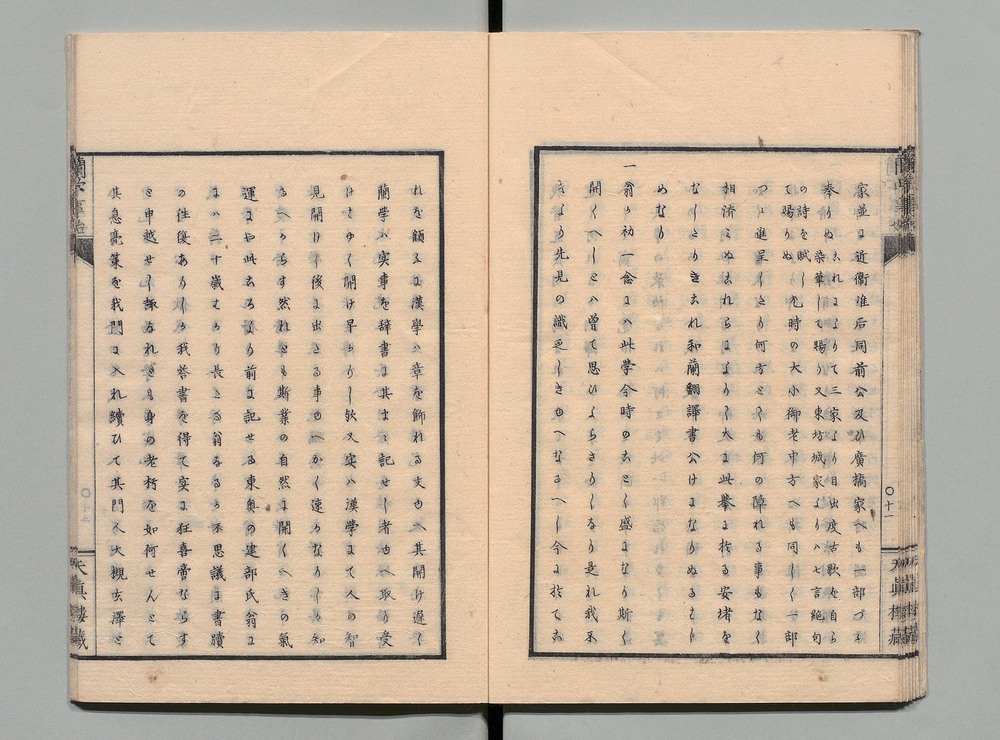 家並に近衞准后同前公及ひ廣橋家へも一部つゝ
奉りぬこれによりて三家より目出度古歌を自ら
染筆して賜り又東坊城家よりハ七言絶句
の詩を賦し
て賜りぬ
其時の大小御老中方へも同しく一部
つゝ進呈しとり何方とても何の障れる事もなく
相濟ミぬこれらによりて大に此擧に於る安堵を
なしたりきこれ和蘭翻譯書公けになりぬるはし
めなり
一翁か初一念にハ此學今時のことく盛になり斯く
開くへしとハ曾て思ひよらさりしなり是れ我不
才より先見の識乏しきゆへなるへし今に於てこ
れを顧るに漢學ハ章を飾れる文ゆへ其開け遅く
蘭學ハ實事を辞書に其まゝ記せし者ゆへ取り受
けはやく開け早かりし歟又実ハ漢學にて人の智
見開けし後に出たる事ゆへかく速かなりしか知
るへからす然れとも斯業の自然に開くへきの氣
運にや此ころより前に記せる東奥の建部氏翁に
はハ二十歳はかり長たる翁なるか不思議に書牘
の往復ありしか我答書を得て実に狂喜啻ならす
と申越せし諏なれとも身の老朽を如何せんとて
其息亮策を我門に入れ續ひて其門人大槻玄澤と
蘭學事始
〇十一
天真樓藏
蘭學事始
〇十二
天真樓藏